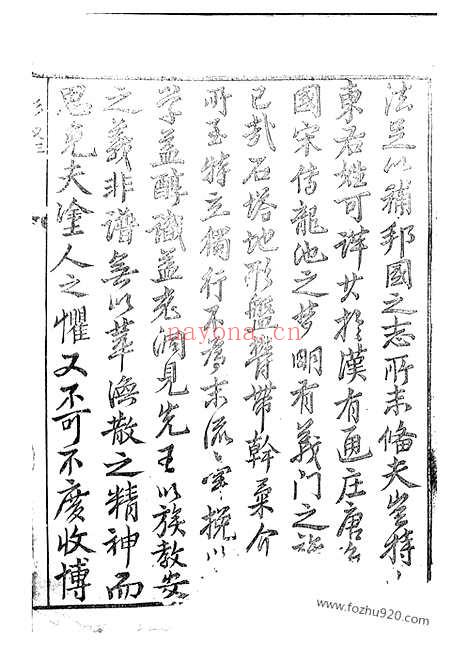 法足以補邦國之志所未備夫豈特
東君姓可詳其於漢有通莊唐
國宋傳龍池之夢明有義門之
已哉石塔地形盤膂帶幹粟介
所至特立獨行不為末流
学益醇識益老洞見先王以族教安
之義非譜無以萃渙散之精神而
思免夫塗人之懼又不可不廣收博
nayona.cn
www.fozhu920.com